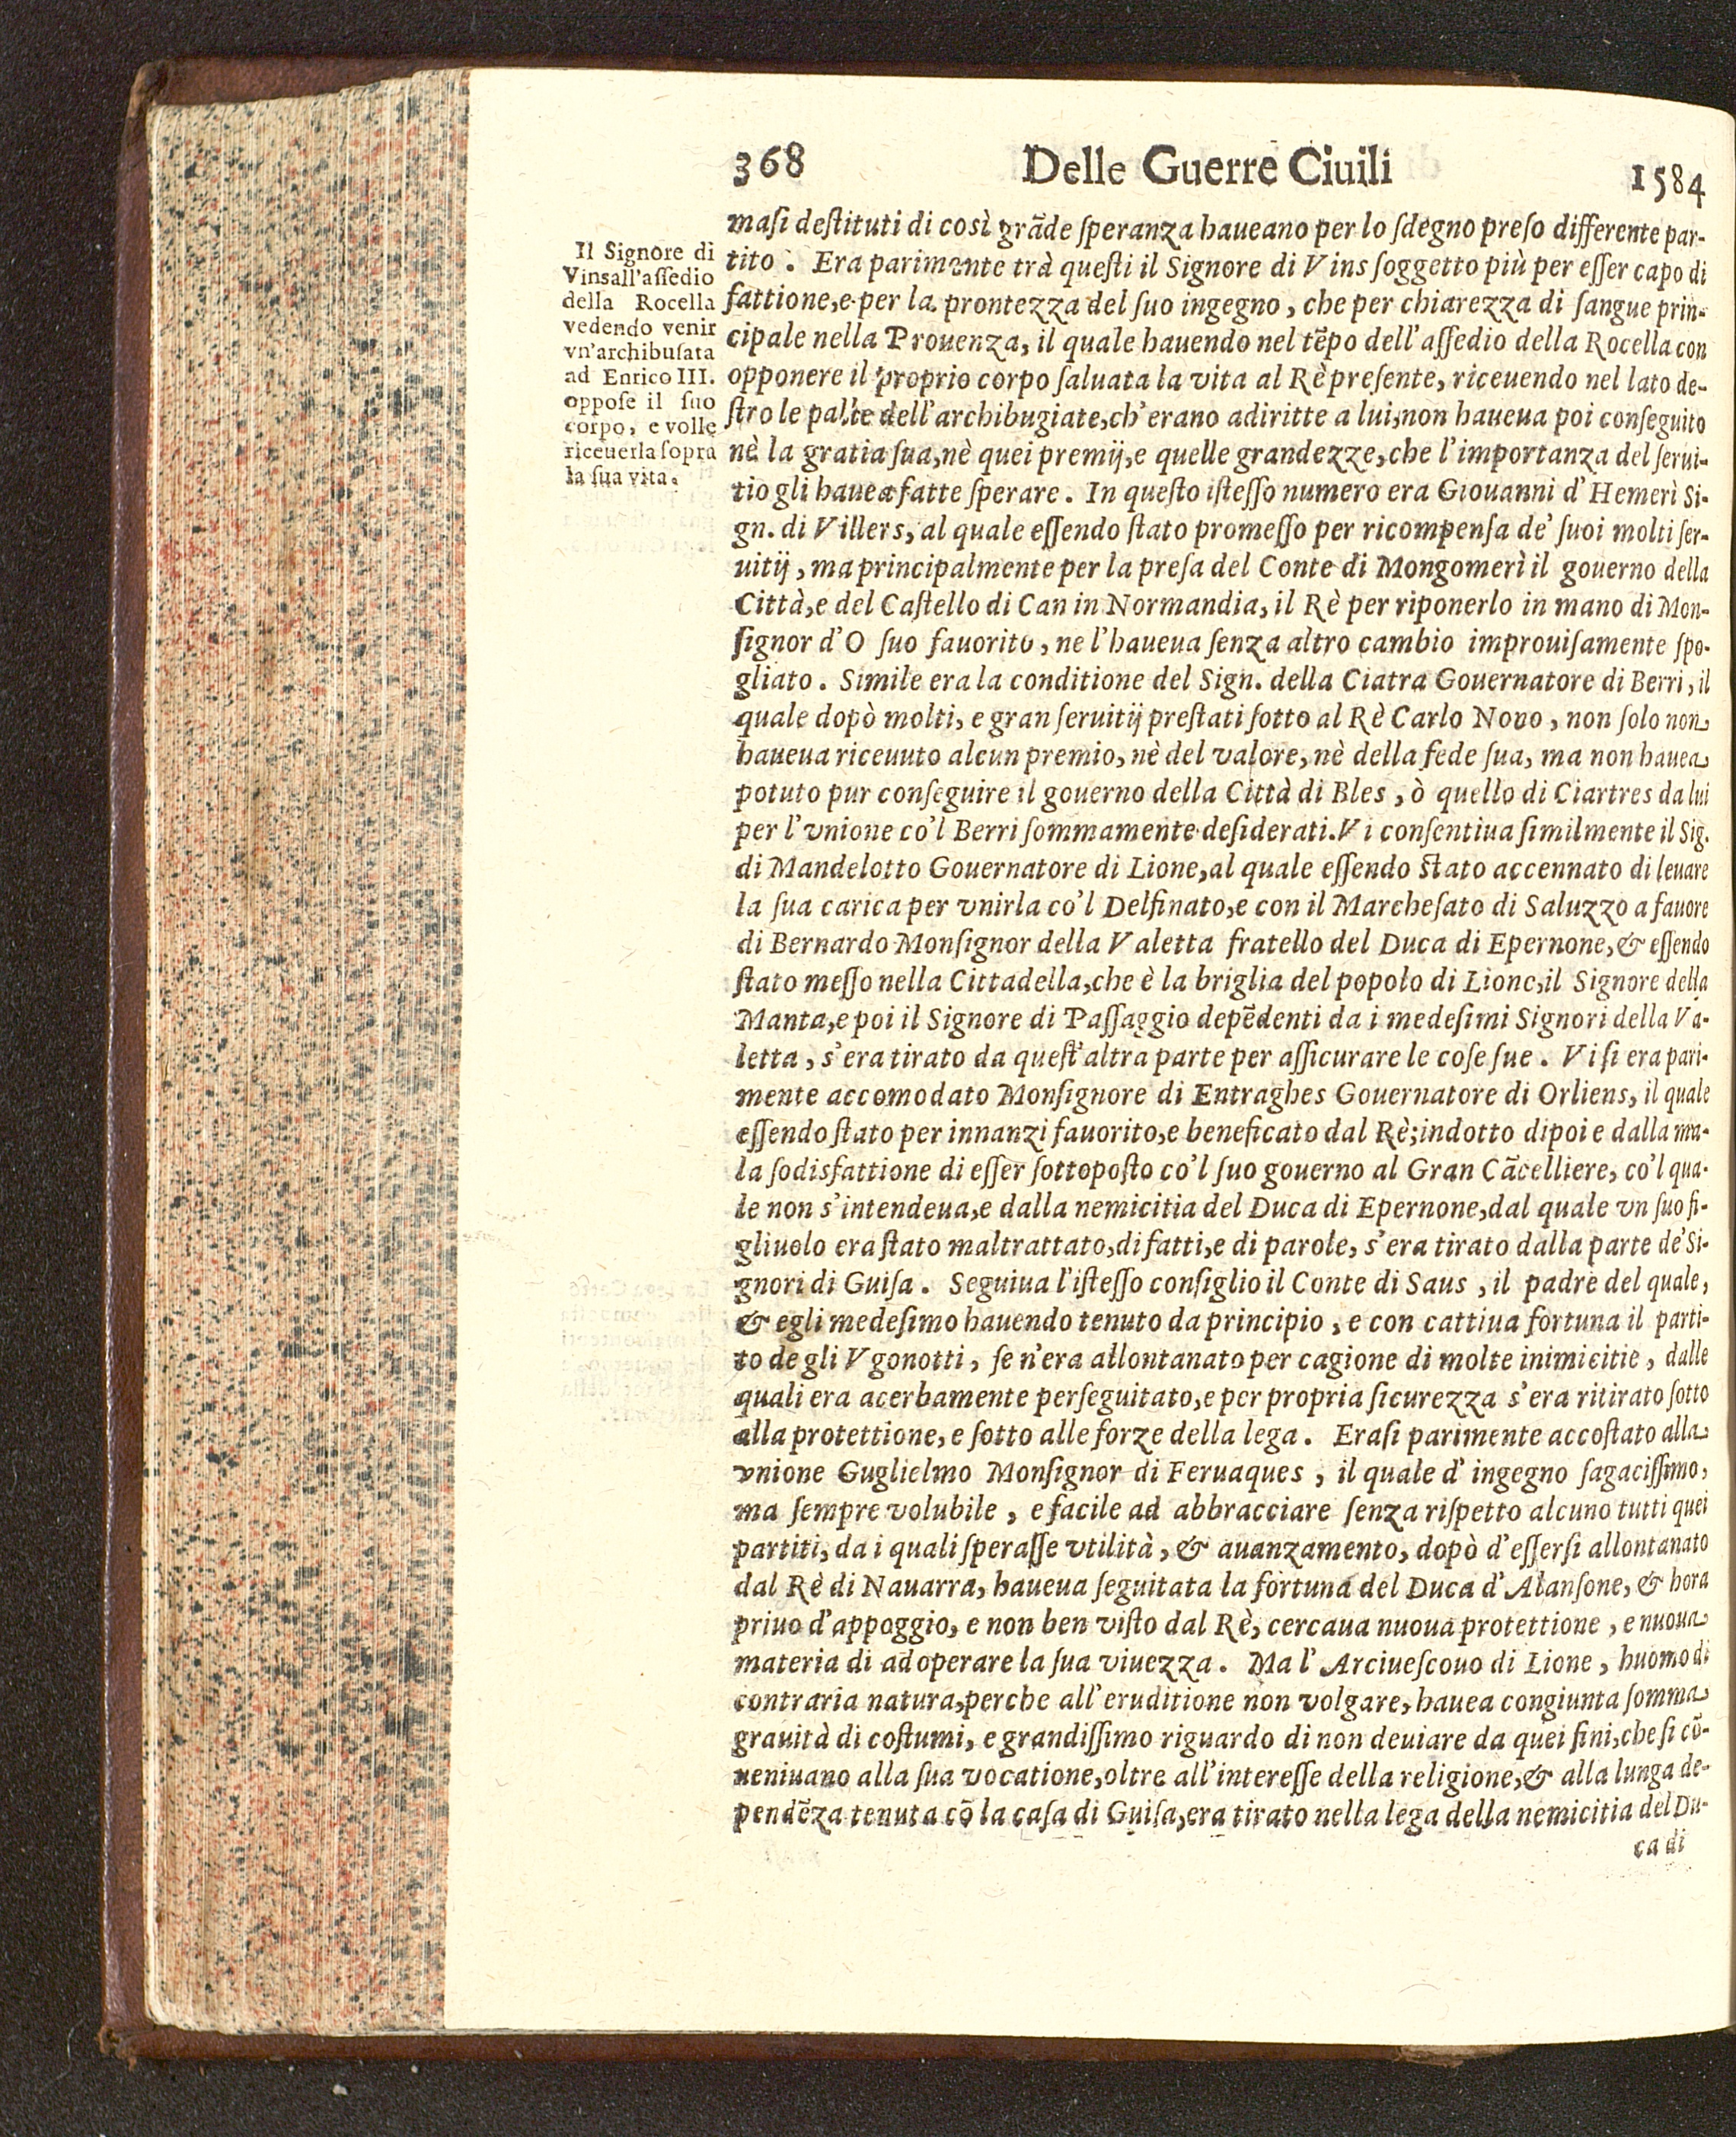 368 Delle Guerre Ciuili 1584
Il Signore di
Vinsall'aſſedio
della Rocella
vedendo venir
vn'archibuſata
ad Enrico III.
oppoſe il ſuo
corpo, e volle
riceuerla ſopra
la ſua vita.
maſi deſtituti di così grãde ſperanza haueano per lo ſdegno preſo differente par-
tito. Era parimente trà queſti il Signore di Vins ſoggetto più per eſſer capo di
fattione, e per la prontezza del ſuo ingegno, che per chiarezza di ſangue prin-
cipale nella Prouenza, il quale hauendo nel tẽpo dell'aſſedio della Rocella con
opponere il proprio corpo ſaluata la vita al Rè preſente, riceuendo nel lato de-
ſtro le palle dell'archibugiate, ch'erano adiritte a lui, non haueua poi conſeguito
nè la gratia ſua, nè quei premij, e quelle grandezze, che l'importanza del ſerui-
tio gli hauea fatte ſperare. In queſto iſteſſo numero era Giouanni d'Hemerì Si-
gn. di Villers, al quale eſſendo ſtato promeſſo per ricompenſa de' ſuoi molti ſer-
uitij, ma principalmente per la preſa del Conte di Mongomerì il gouerno della
Città, e del Caſtello di Can in Normandia, il Rè per riponerlo in mano di Mon-
ſignor d'O ſuo fauorito, ne l'haueua ſenza altro cambio improuiſamente ſpo-
gliato. Simile era la conditione del Sign. della Ciatra Gouernatore di Berri, il
quale dopò molti, e gran ſeruitij preſtati ſotto al Rè Carlo Nono, non ſolo non
haueua riceuuto alcun premio, nè del valore, nè della fede ſua, ma non hauea
potuto pur conſeguire il gouerno della Città di Bles, ò quello di Ciartres da lui
per l'vnione co'l Berri ſommamente deſiderati. Vi conſentiua ſimilmente il Sig.
di Mandelotto Gouernatore di Lione, al quale eſſendo ſtato accennato di leuare
la ſua carica per vnirla co'l Delfinato, e con il Marcheſato di Saluzzo a fauore
di Bernardo Monſignor della Valetta fratello del Duca di Epernone, & eſſendo
ſtato meſſo nella Cittadella, che è la briglia del popolo di Lione, il Signore della
Manta, e poi il Signore di Paſſaggio depẽdenti da i medeſimi Signori della Va-
letta, s'era tirato da queſt'altra parte per aſſicurare le coſe ſue. Vi ſi era pari-
mente accomodato Monſignore di Entraghes Gouernatore di Orliens, il quale
eſſendo ſtato per innanzi fauorito, e beneficato dal Rè; indotto dipoi e dalla ma-
la ſodisfattione di eſſer ſottopoſto co'l ſuo gouerno al Gran Cãcelliere, co'l qua-
le non s'intendeua, e dalla nemicitia del Duca di Epernone, dal quale vn ſuo fi-
gliuolo era ſtato maltrattato, di fatti, e di parole, s'era tirato dalla parte de' Si-
gnori di Guiſa. Seguiua l'iſteſſo conſiglio il Conte di Saus, il padre del quale,
& egli medeſimo hauendo tenuto da principio, e con cattiua fortuna il parti-
to de gli Vgonotti, ſe n'era allontanato per cagione di molte inimicitie, dalle
quali era acerbamente perſeguitato, e per propria ſicurezza s'era ritirato ſotto
alla protettione, e ſotto alle forze della lega. Eraſi parimente accoſtato alla
vnione Guglielmo Monſignor di Feruaques, il quale d'ingegno ſagaciſſimo,
ma ſempre volubile, e facile ad abbracciare ſenza riſpetto alcuno tutti quei
partiti, da i quali ſperaſſe vtilità, & auanzamento, dopò d'eſſerſi allontanato
dal Rè di Nauarra, haueua ſeguitata la fortuna del Duca d'Alanſone, & hora
priuo d'appoggio, e non ben viſto dal Rè, cercaua nuoua protettione, e nuoua
materia di adoperare la ſua viuezza. Ma l'Arciueſcouo di Lione, huomo di
contraria natura, perche all'eruditione non volgare, hauea congiunta ſomma
grauità di coſtumi, e grandiſſimo riguardo di non deuiare da quei fini, che ſi cõ-
ueniuano alla ſua vocatione, oltre all'intereſſe della religione, & alla lunga de-
pendẽza tenuta cõ la caſa di Guiſa, era tirato nella lega della nemicitia del Du-
ca di